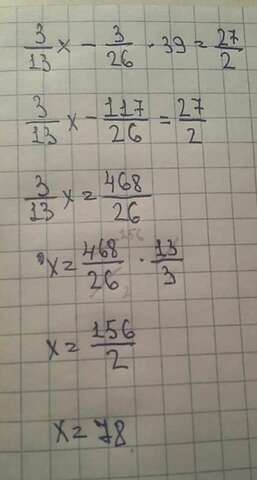 3/13 x - 3/26 · 39 = 27/2
3/13 x - 117/26 = 27/2
3/13 x = 468/26
x = 468/26 · 13/3
x = 156/2
x = 78